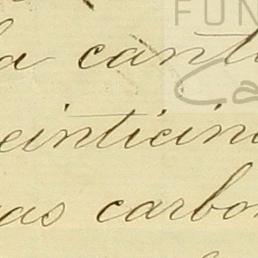 FUN
la cant
Ca
einticin
as carbo